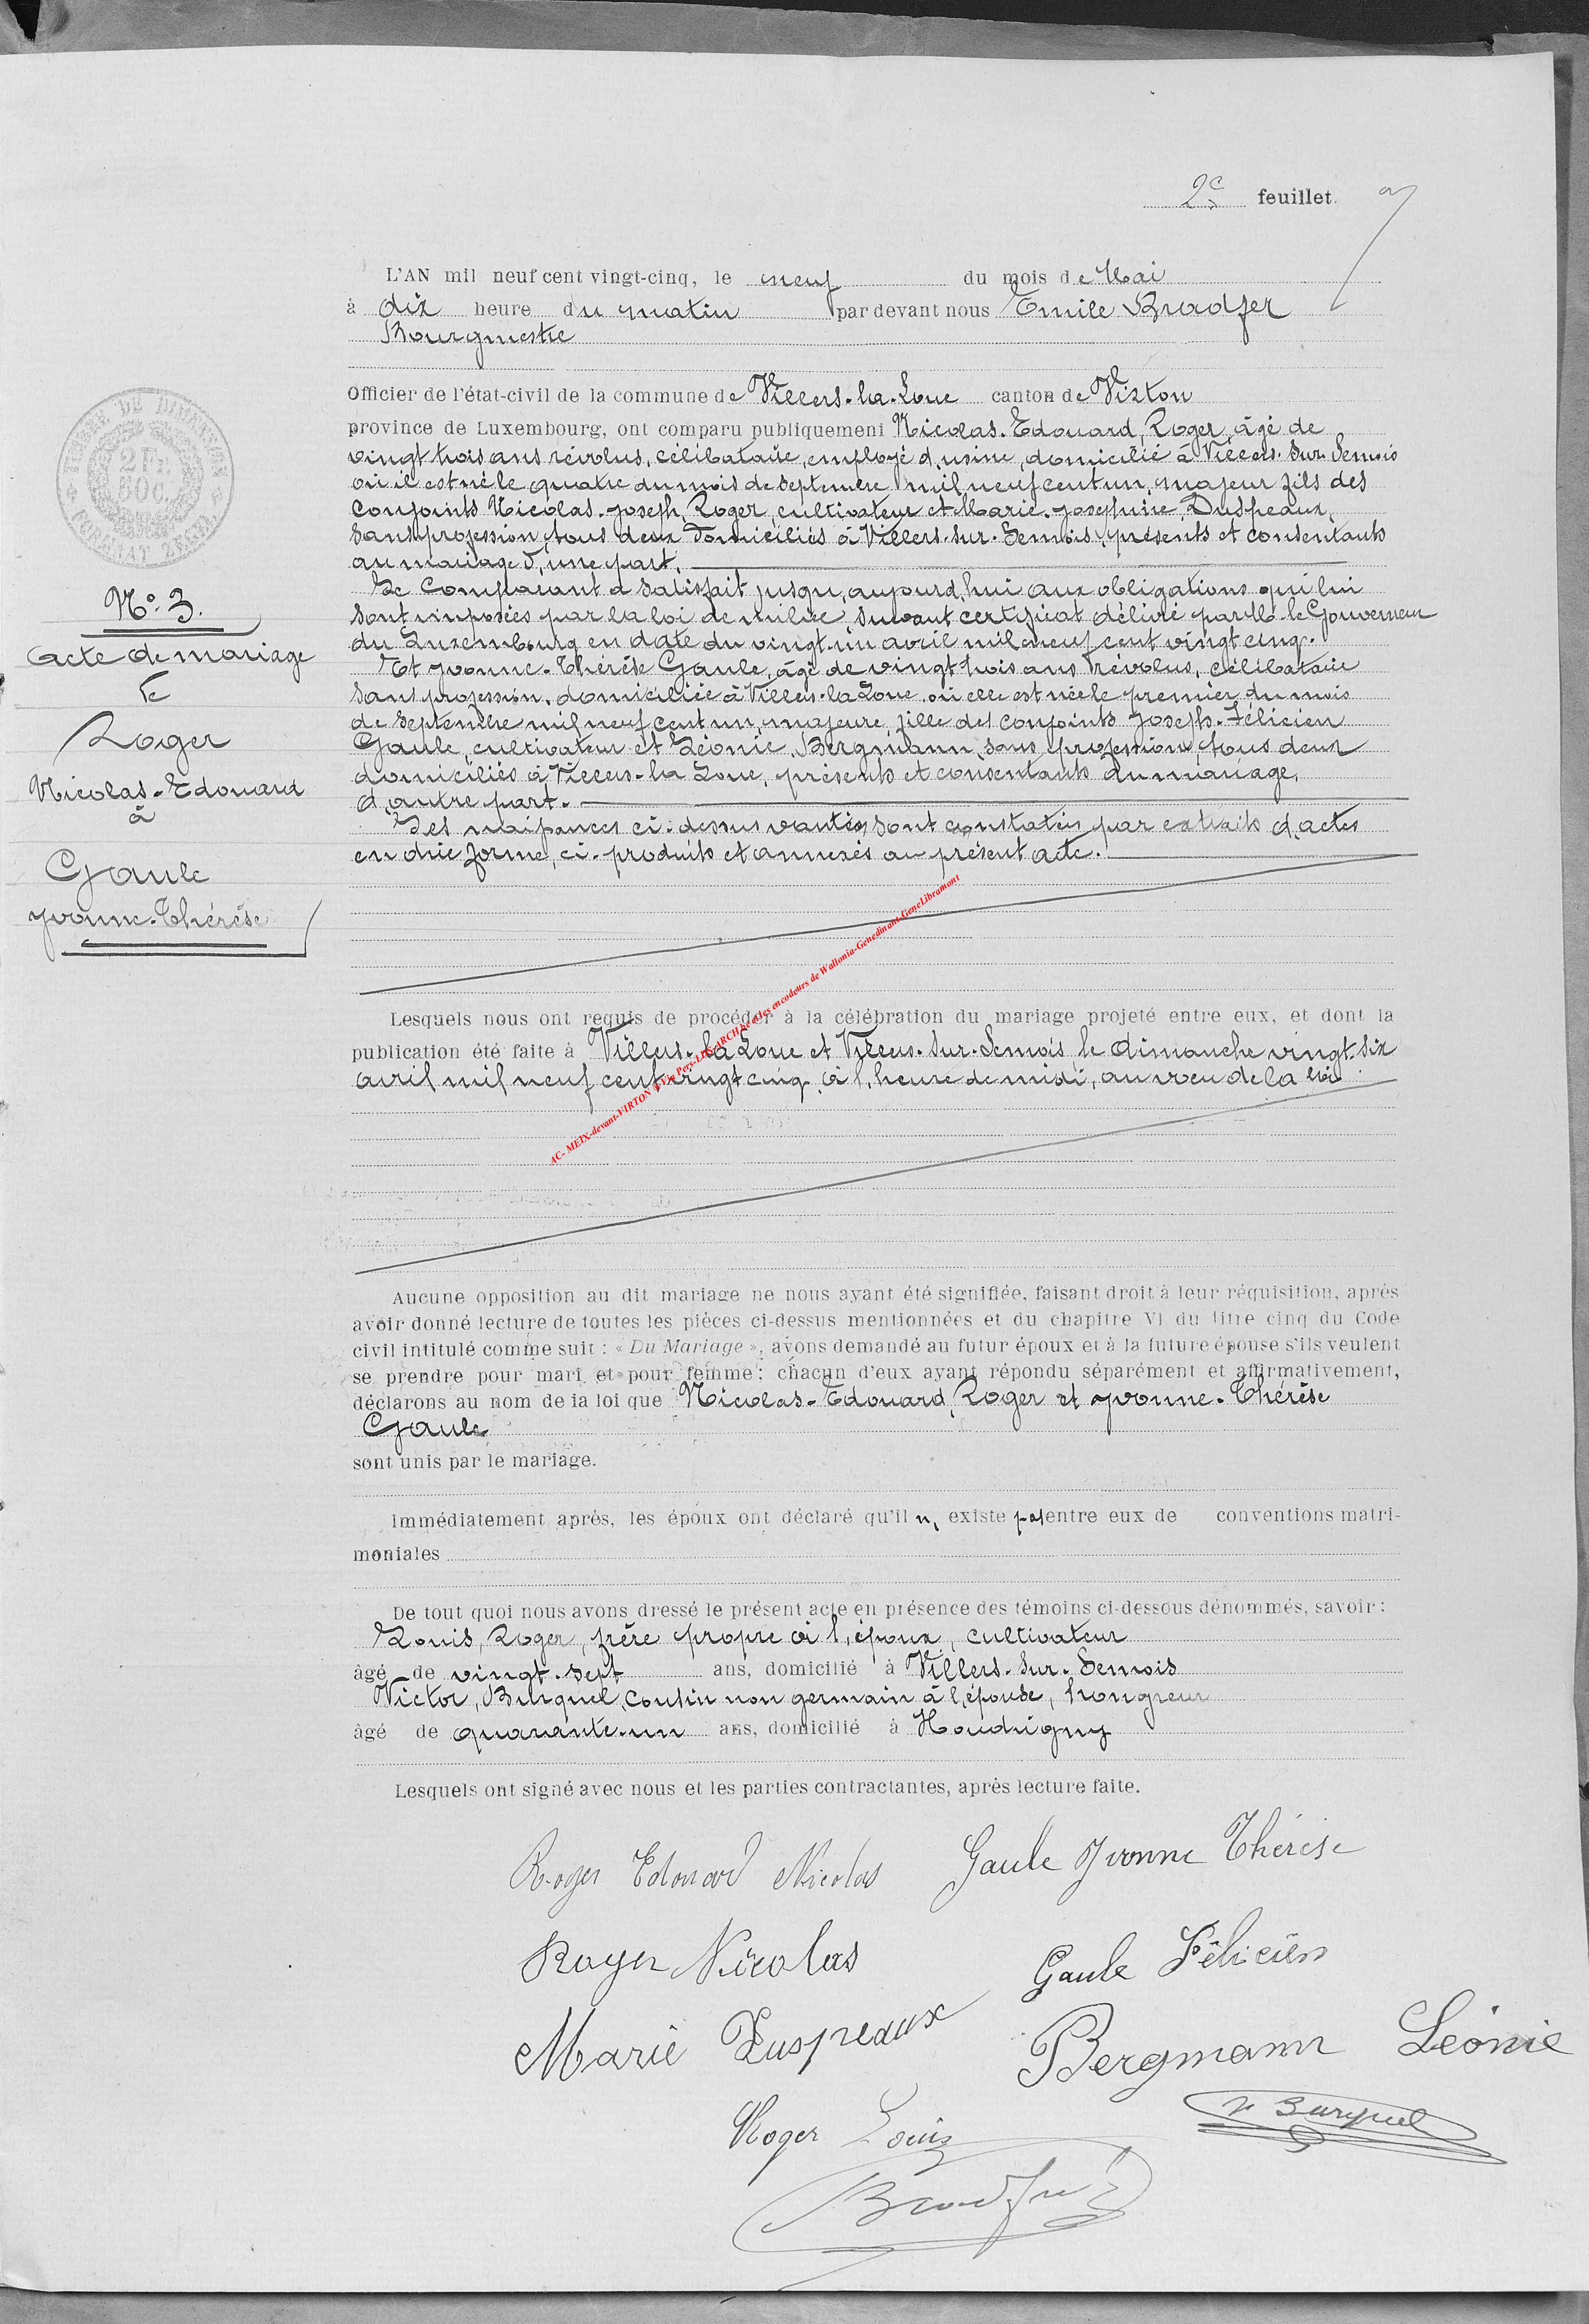 2e feuillet.
L'AN mil neuf cent vingt-cinq, le neuf du mois de Mai
à dix heure du matin par devant nous Emile Bradfer
Bourgmestre
Officier de l'état-civil de la commune de Villers-la-Loue canton de Virton
province de Luxembourg, ont comparu publiquement Nicolas-Edouard, Roger, âgé de
vingt trois ans révolus, célibataire, employé d'usine, domicilié à Villers-sur-Semois
où il est né le quatre du mois de septembre mil neuf cent un, majeur fils des
conjoints Nicolas-Joseph, Roger, cultivateur et Marie-Josephine, Duspeaux,
sans profession, tous deux domiciliés à Villers-sur-Semois, présents et consentants
au mariage d'une part.
Le comparant a satisfait jusqu'aujourd'hui aux obligations qui lui
sont imposées par la loi de milice suivant certificat délivré par Mr le Gouverneur
du Luxembourg en date du vingt-un avril mil neuf cent vingt cinq.
Et Yvonne-Thérèse Gaule, âgé de vingt trois ans révolus, célibataire
sans profession, domiciliée à Villers-la-Loue, où elle est née le premier du mois
de septembre mil neuf cent un, majeure, fille des conjoints Joseph-Félicien
Gaule, cultivateur et Léonie, Bergmann, sans profession, tous deux
domiciliés à Villers-la-Loue, présents et consentants au mariage,
d'autre part.
Les naissances ci-dessus vantées sont constatées par extraits d'actes
en due forme, ci-produits et annexés au présent acte.
N° 3.
Acte de mariage
de
Roger
Nicolas-Edouard
à
Gaule
Yvonne-Thérèse
Lesquels nous ont requis de procéder à la célébration du mariage projeté entre eux, et dont la
publication été faite à Villers-la-Loue et Villers-sur-Semois le dimanche vingt-six
avril mil neuf cent vingt cinq, à l'heure de midi, au vœu de la loi
Aucune opposition au dit mariage ne nous ayant été signifiée, faisant droit à leur réquisition, après
avoir donné lecture de toutes les pièces ci-dessus mentionnées et du chapitre VI du titre cinq du Code
civil intitulé comme suit : « Du Mariage », avons demandé au futur époux et à la future épouse s'ils veulent
se prendre pour mari et pour femme ; chacun d'eux ayant répondu séparément et affirmativement,
déclarons au nom de la loi que Nicolas-Edouard, Roger et Yvonne-Thérèse
Gaule
sont unis par le mariage.
Immédiatement après, les époux ont déclaré qu'il n' existe pas entre eux de conventions matri-
moniales
De tout quoi nous avons dressé le présent acte en présence des témoins ci-dessous dénommés, savoir :
Louis, Roger, frère propre à l'époux, cultivateur
âgé de vingt-sept ans, domicilié à Villers-sur-Semois
Victor, Burquel, cousin non germain à l'épouse, hongreur
âgé de quarante-un ans, domicilié à Houdrigny
Lesquels ont signé avec nous et les parties contractantes, après lecture faite.
Roger Edouard Nicolas Gaule Yvonne Thérèse
Roger Nicolas Gaule Félicien
Marie Duspeaux Bergmann Léonie
Roger Louis V Burquel
Bradfer